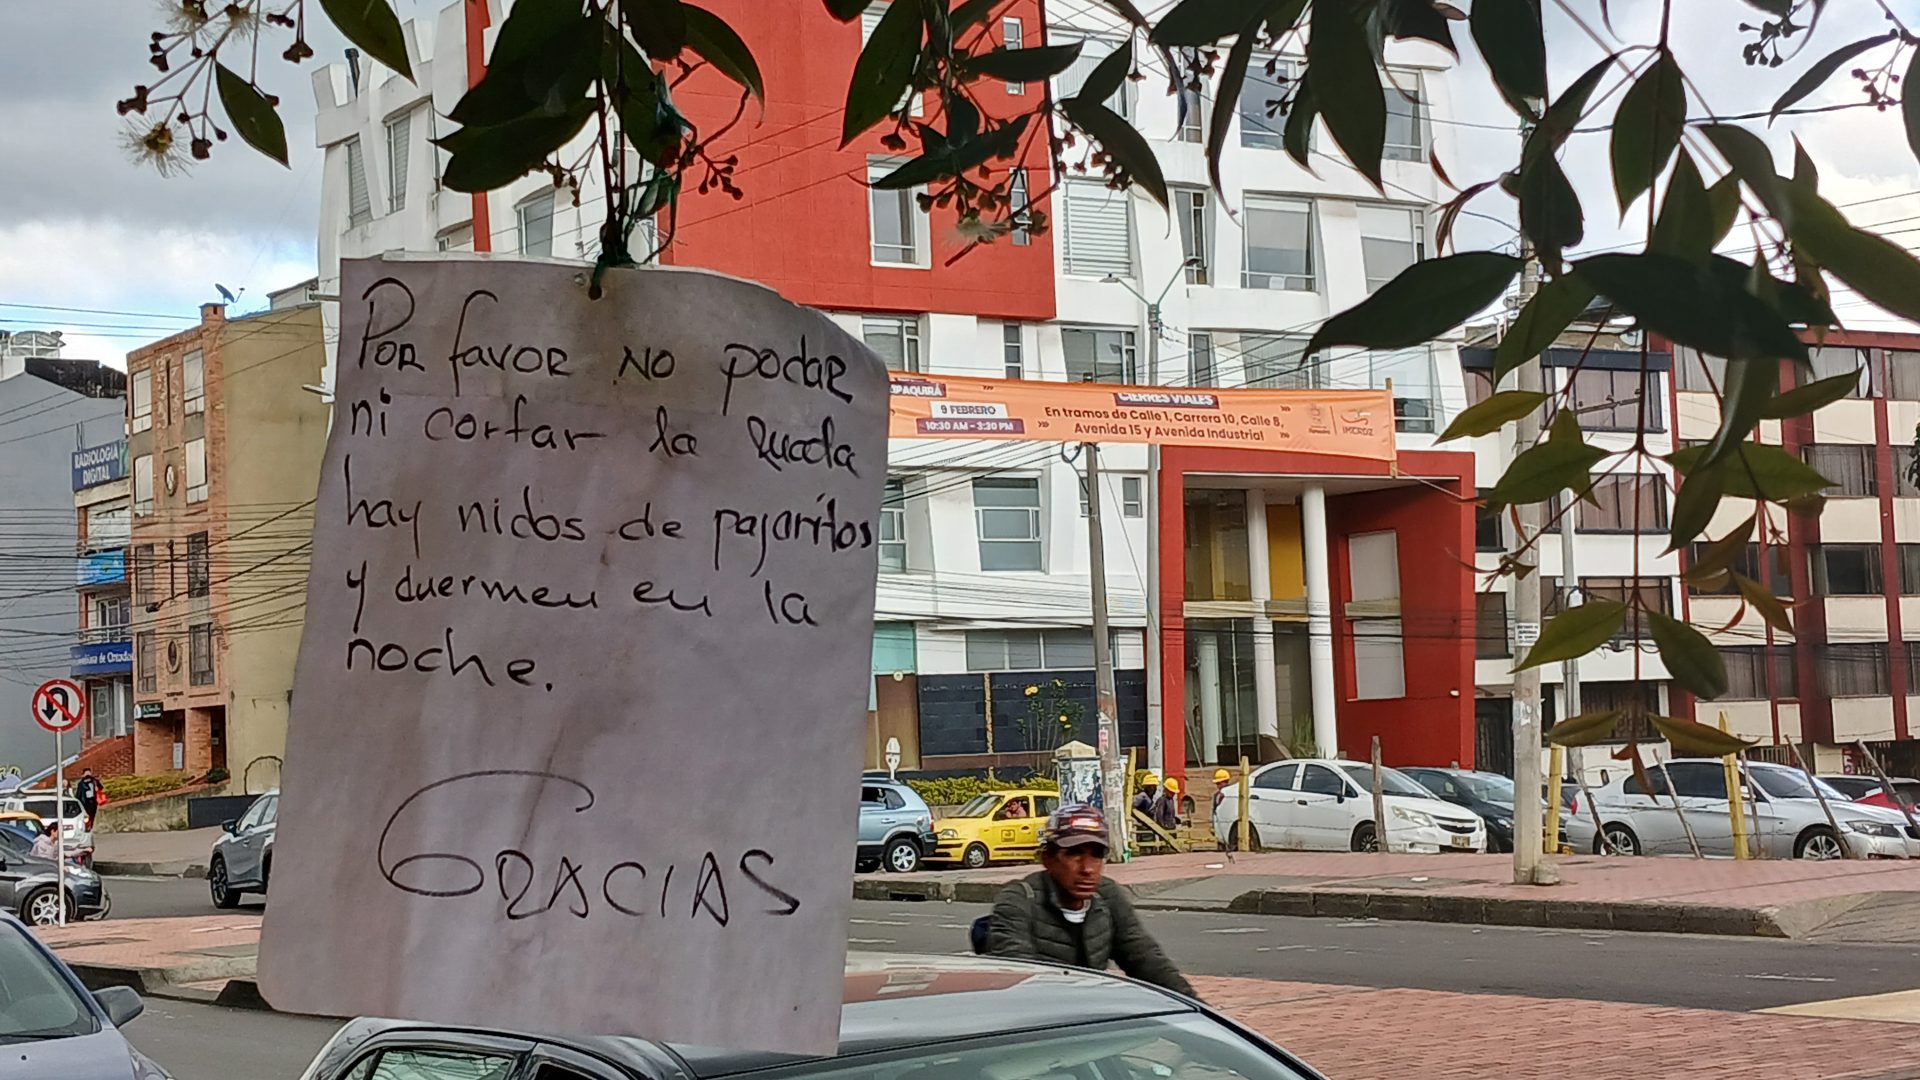 Por favor NO podar
ni cortar la Rueda
hay nidos de pajaritos
y duermen en la
noche.
GRACIAS
RADIOLOGIA
DIGITAL
IPAQUIRÁ
9 FEBRERO
10:30 AM - 3:30 PM
CIERRES VIALES
En tramos de Calle 1, Carrera 10, Calle 8,
Avenida 15 y Avenida Industrial
IMCRDZ